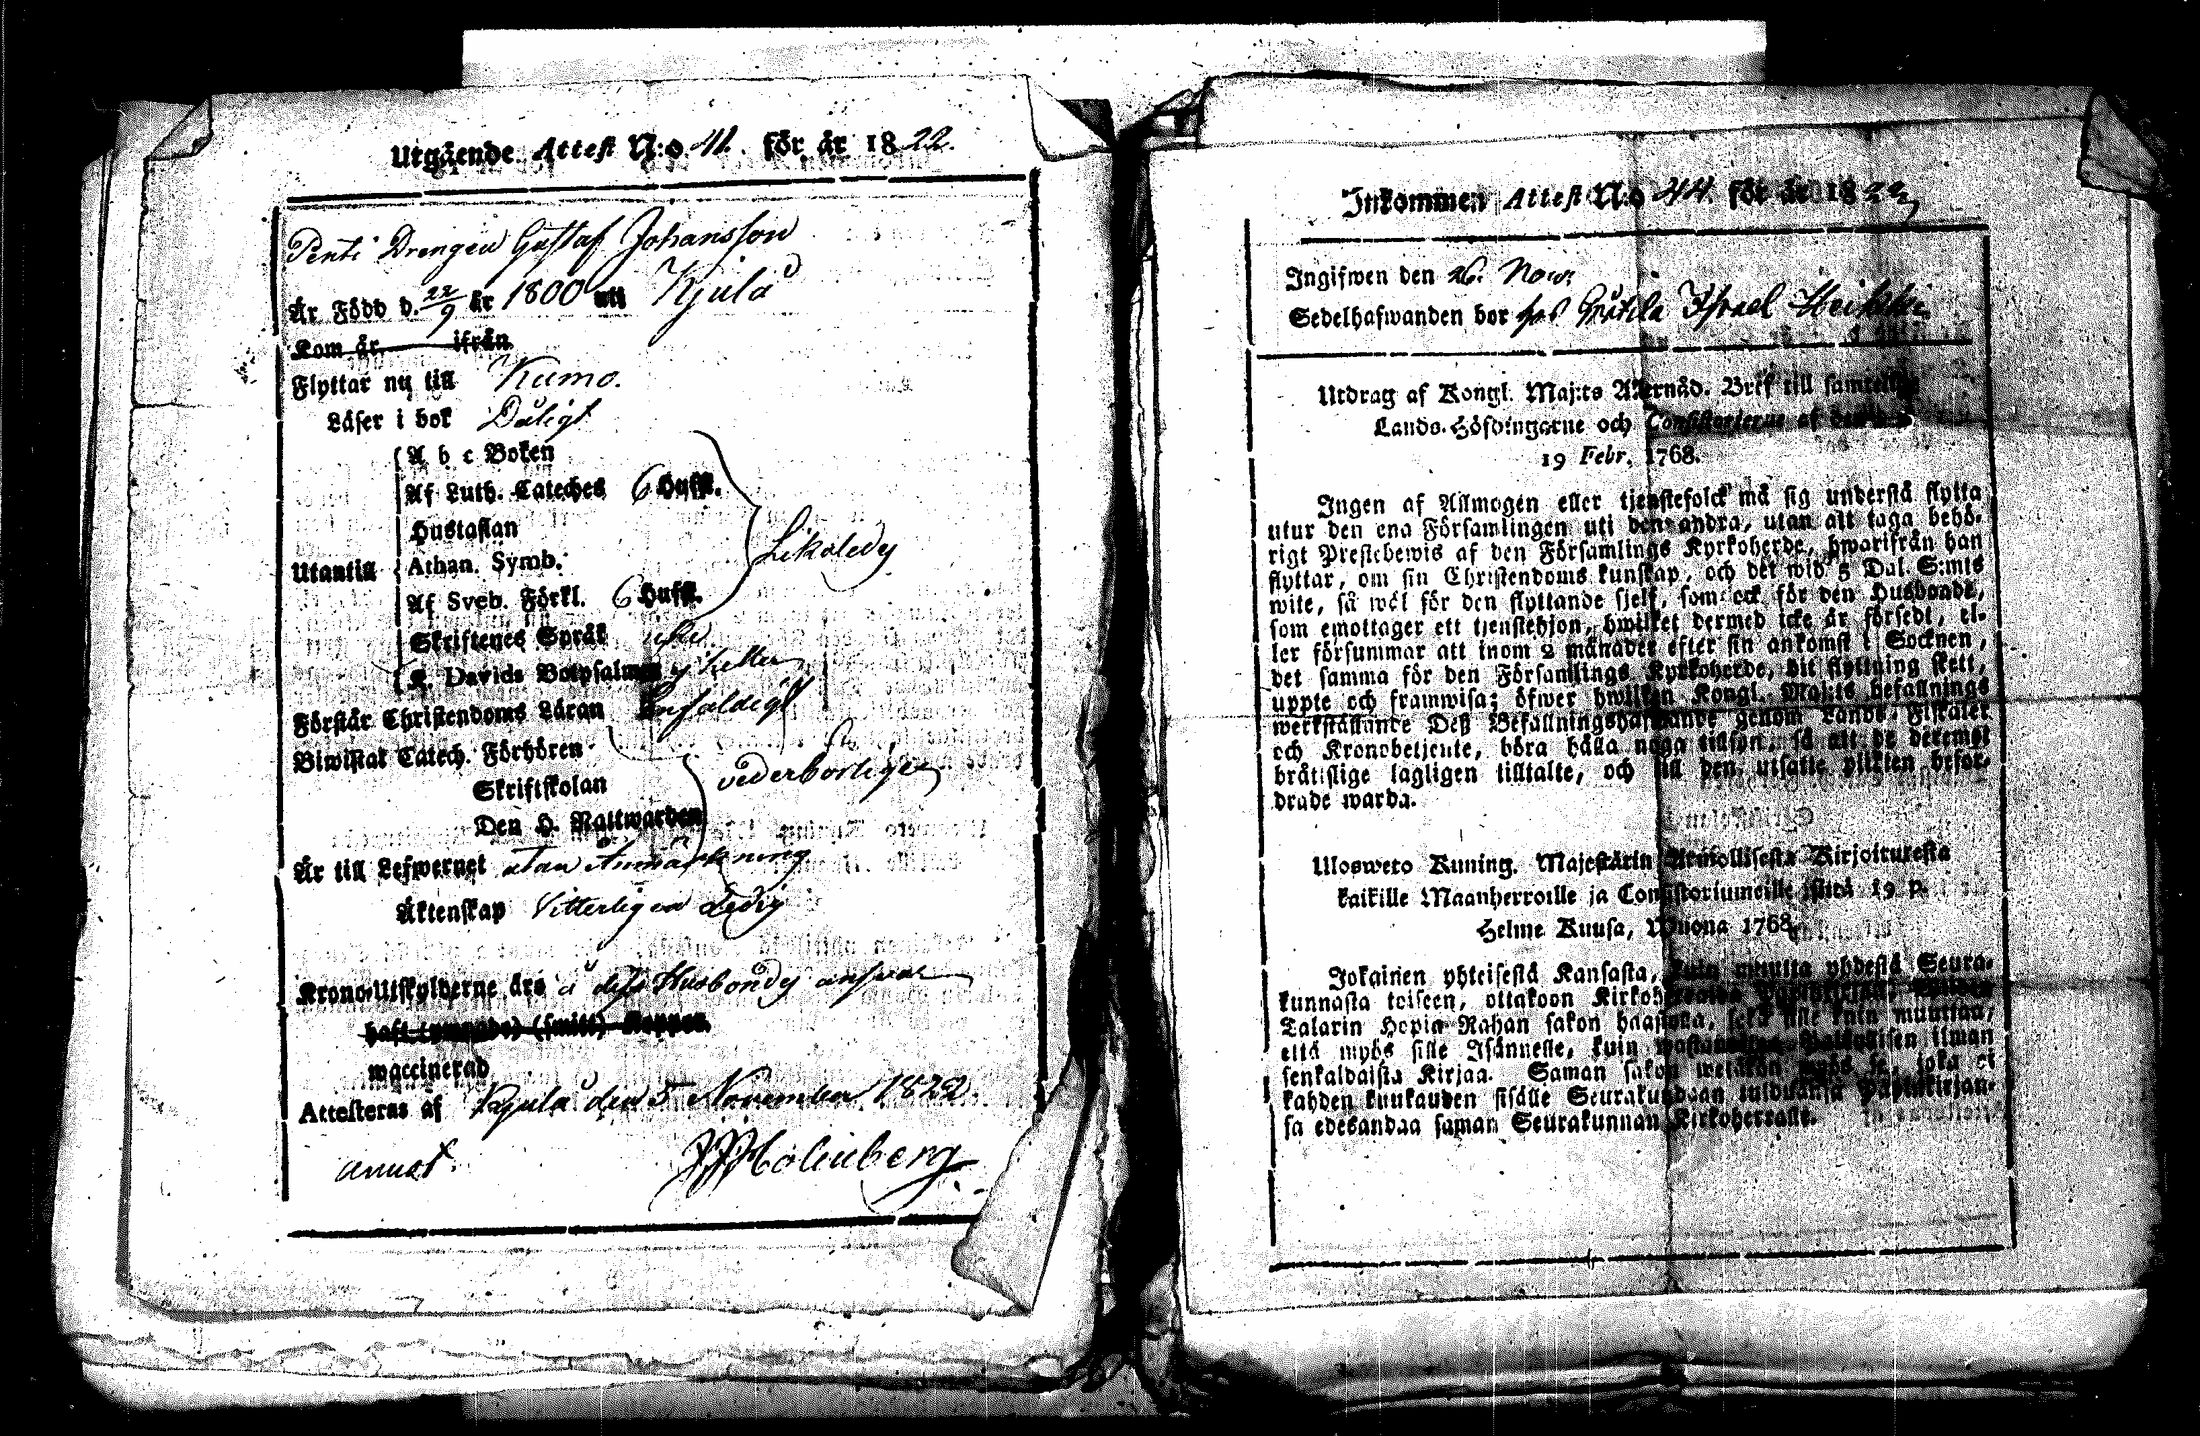 Utgående Attest N:o 41. för år 1822.
Penti Drengen Gustaf Johansson
Är Född d. 22/9 år 1800 uti Kjulå
Kom år ifrån
Flyttar nu till Kumo.
Läser i bok Dåligt
A b c Boken
Af Luth. Cateches 6 Hufst.
Hustaflan
Utantill Athan. Symb.
Likaledes
Af Sveb. Förkl. 6 Hufst.
Skriftenes Språk
Davids Botpsalmer
Förstår Christendoms Läran Enfaldigt
Biwistat Catech. Förhören
Skriftskolan vederbörligen
Den H. Nattwarden
Är till Lefwernet utan Anmärkning
Äktenskap Vitterligen Ledig
Krono-Utskylderne års å dess Husbondes answar
haft (smitt) Koppor.
waccinerad
Attesteras af Kjulå den 5 November 1822.
Holmberg
Inkommen Attest N:o 44. för år 1822,
Ingifwen den 26. Now:
Sedelhafwanden bor hos Israel Heikki
Utdrag af Kongl. Maj:ts Allernåd. Bref till samtelige
Lands-Höfdingarne och Consistorierne af den
19 Febr. 1768.
Ingen af Allmogen eller tjenstefolck må sig understå flytta
utur den ena Församlingen uti den andra, utan att taga behö-
rigt Prestebewis af den Församlings Kyrkoherde, hwarifrån han
flyttar, om sin Christendoms kunskap, och det wid 5 Dal. S:mts
wite, så wäl för den flyttande sjelf, som ock för den Husbonde,
som emottager ett tjenstehjon, hwilket dermed icke är försedt, el-
ler försummar att inom 2 månader efter sin ankomst i Socknen,
det samma för den Församlings Kyrkoherde, dit flyttning skett,
uppte och framwisa; öfwer hwilken Kongl. Maj:ts befallnings
werkställante Deß Befallningshafwande genom Lands-Fiskaler
och Kronobetjente, böra hålla noga tillsyn, så att de deremot
bråtislige lagligen tilltalte, och till den utsatte plikten befor-
drade warda.
Ulosweto Kuning. Majestärin Armollisesta Kirjoituxesta
kaikille Maanherroille ja Consistoriumeille siitä 19 p.
Helme Kuusa, Wuona 1768.
Jokainen yhteisestä Kansasta, kuin muutta yhdestä Seura-
kunnasta toiseen, ottakoon
Talarin Hopia Rahan sakon haastolla, sekä sille kuin muuttaa,
että myös sille Isännelle, kuin ilman
senkaldaista Kirjaa. Saman sakon wetäkön myös se, joka ei
kahden kuukauden sisälle Seurakundaan tulduansa Papinkirjan-
sa edesandaa saman Seurakunnan Kirkoherralle.